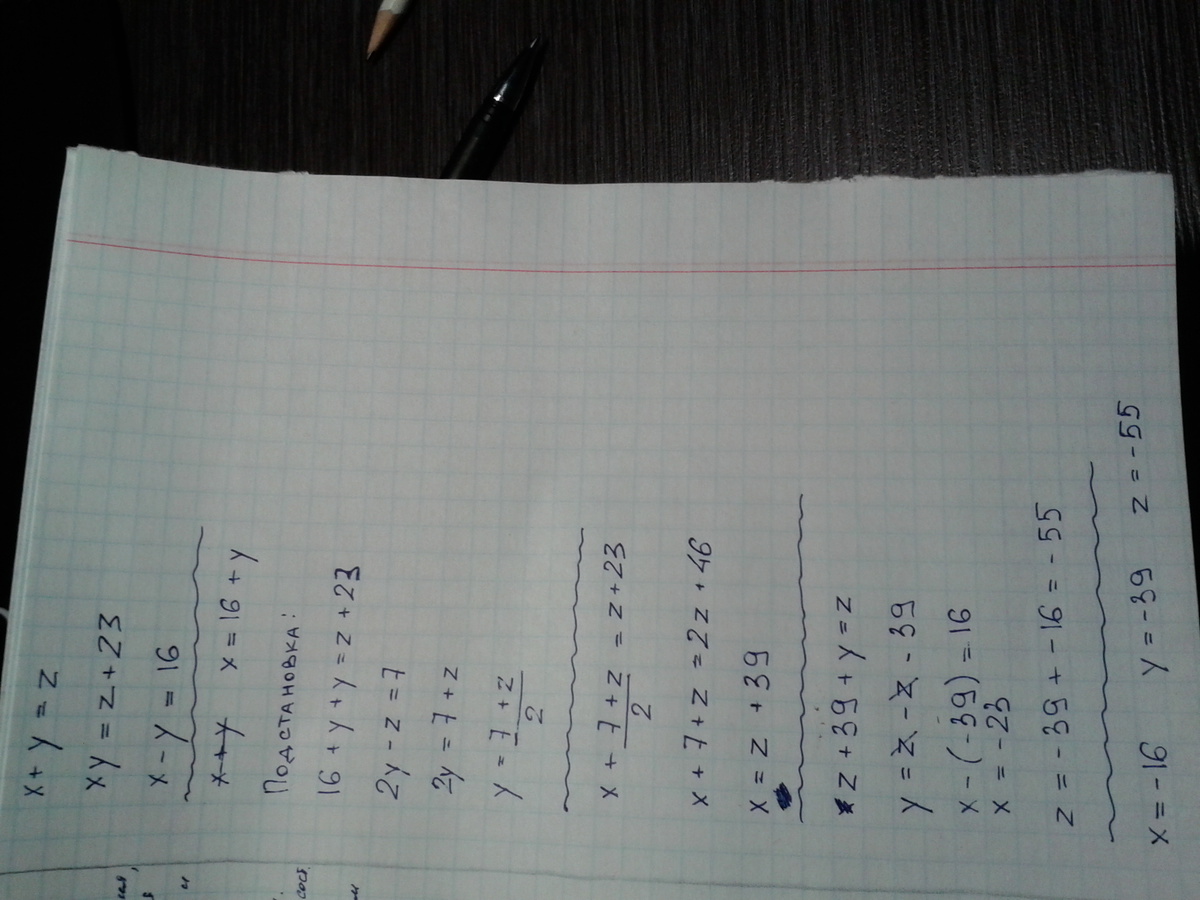 x + y = z
xy = z + 23
x - y = 16
x + y x = 16 + y
Подстановка:
16 + y + y = z + 23
2y - z = 7
2y = 7 + z
y = (7 + z)/2
x + (7 + z)/2 = z + 23
x + 7 + z = 2z + 46
x = z + 39
z + 39 + y = z
y = z - z - 39
x - (-39) = 16
x = -23
z = -39 + -16 = -55
x = -16 y = -39 z = -55